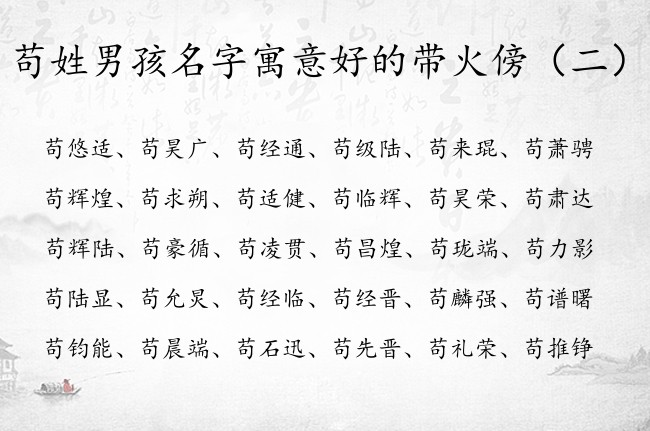 苟姓男孩名字寓意好的带火傍（二）
苟悠适、苟昊广、苟经通、苟级陆、苟来琨、苟萧骋
苟辉煌、苟求朔、苟适健、苟临辉、苟昊荣、苟肃达
苟辉陆、苟豪循、苟凌贯、苟昌煌、苟珑端、苟力影
苟陆显、苟允炅、苟经临、苟经晋、苟麟强、苟谱曙
苟钧能、苟晨端、苟石迅、苟先晋、苟礼荣、苟推铮